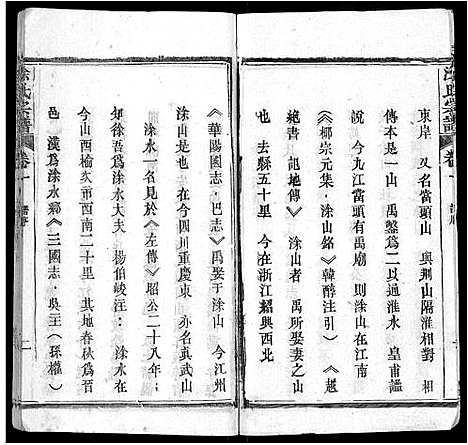 東岸 又名當頭山 與荆山隔淮相對 相
傳本是一山 禹鑿為二以通淮水 皇甫謐
說 今九江當頭有禹廟 則涂山在江南
《柳宗元集·涂山銘》(韓醇注引) 《越
絕書 記地傳》 涂山者 禹所娶妻之山
也 去縣五十里 今在浙江紹興西北
《華陽國志·巴志》禹娶于涂山 今江州
涂山是也 在今四川重慶東 亦名真武山
涂水一名見於《左傳》昭公二十八年:
知徐吾為涂水大夫 楊伯峻注: 涂水在
今山西榆次市西南二十里 其地春秋為晉
邑 漢為涂水鄉《三國志·吳主(孫權)
涂氏宗譜
卷一